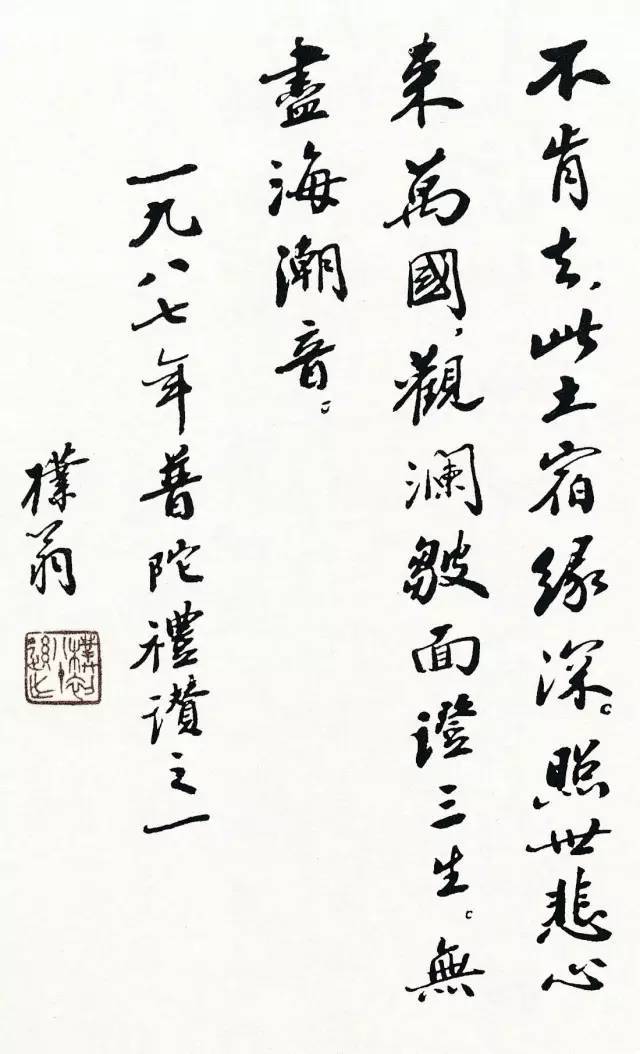 不肯去，此土宿缘深。照世悲心
来萬國，觀澜皺面證三生。無
盡海潮音。
一九八七年普陀禮讃之一
樸翁